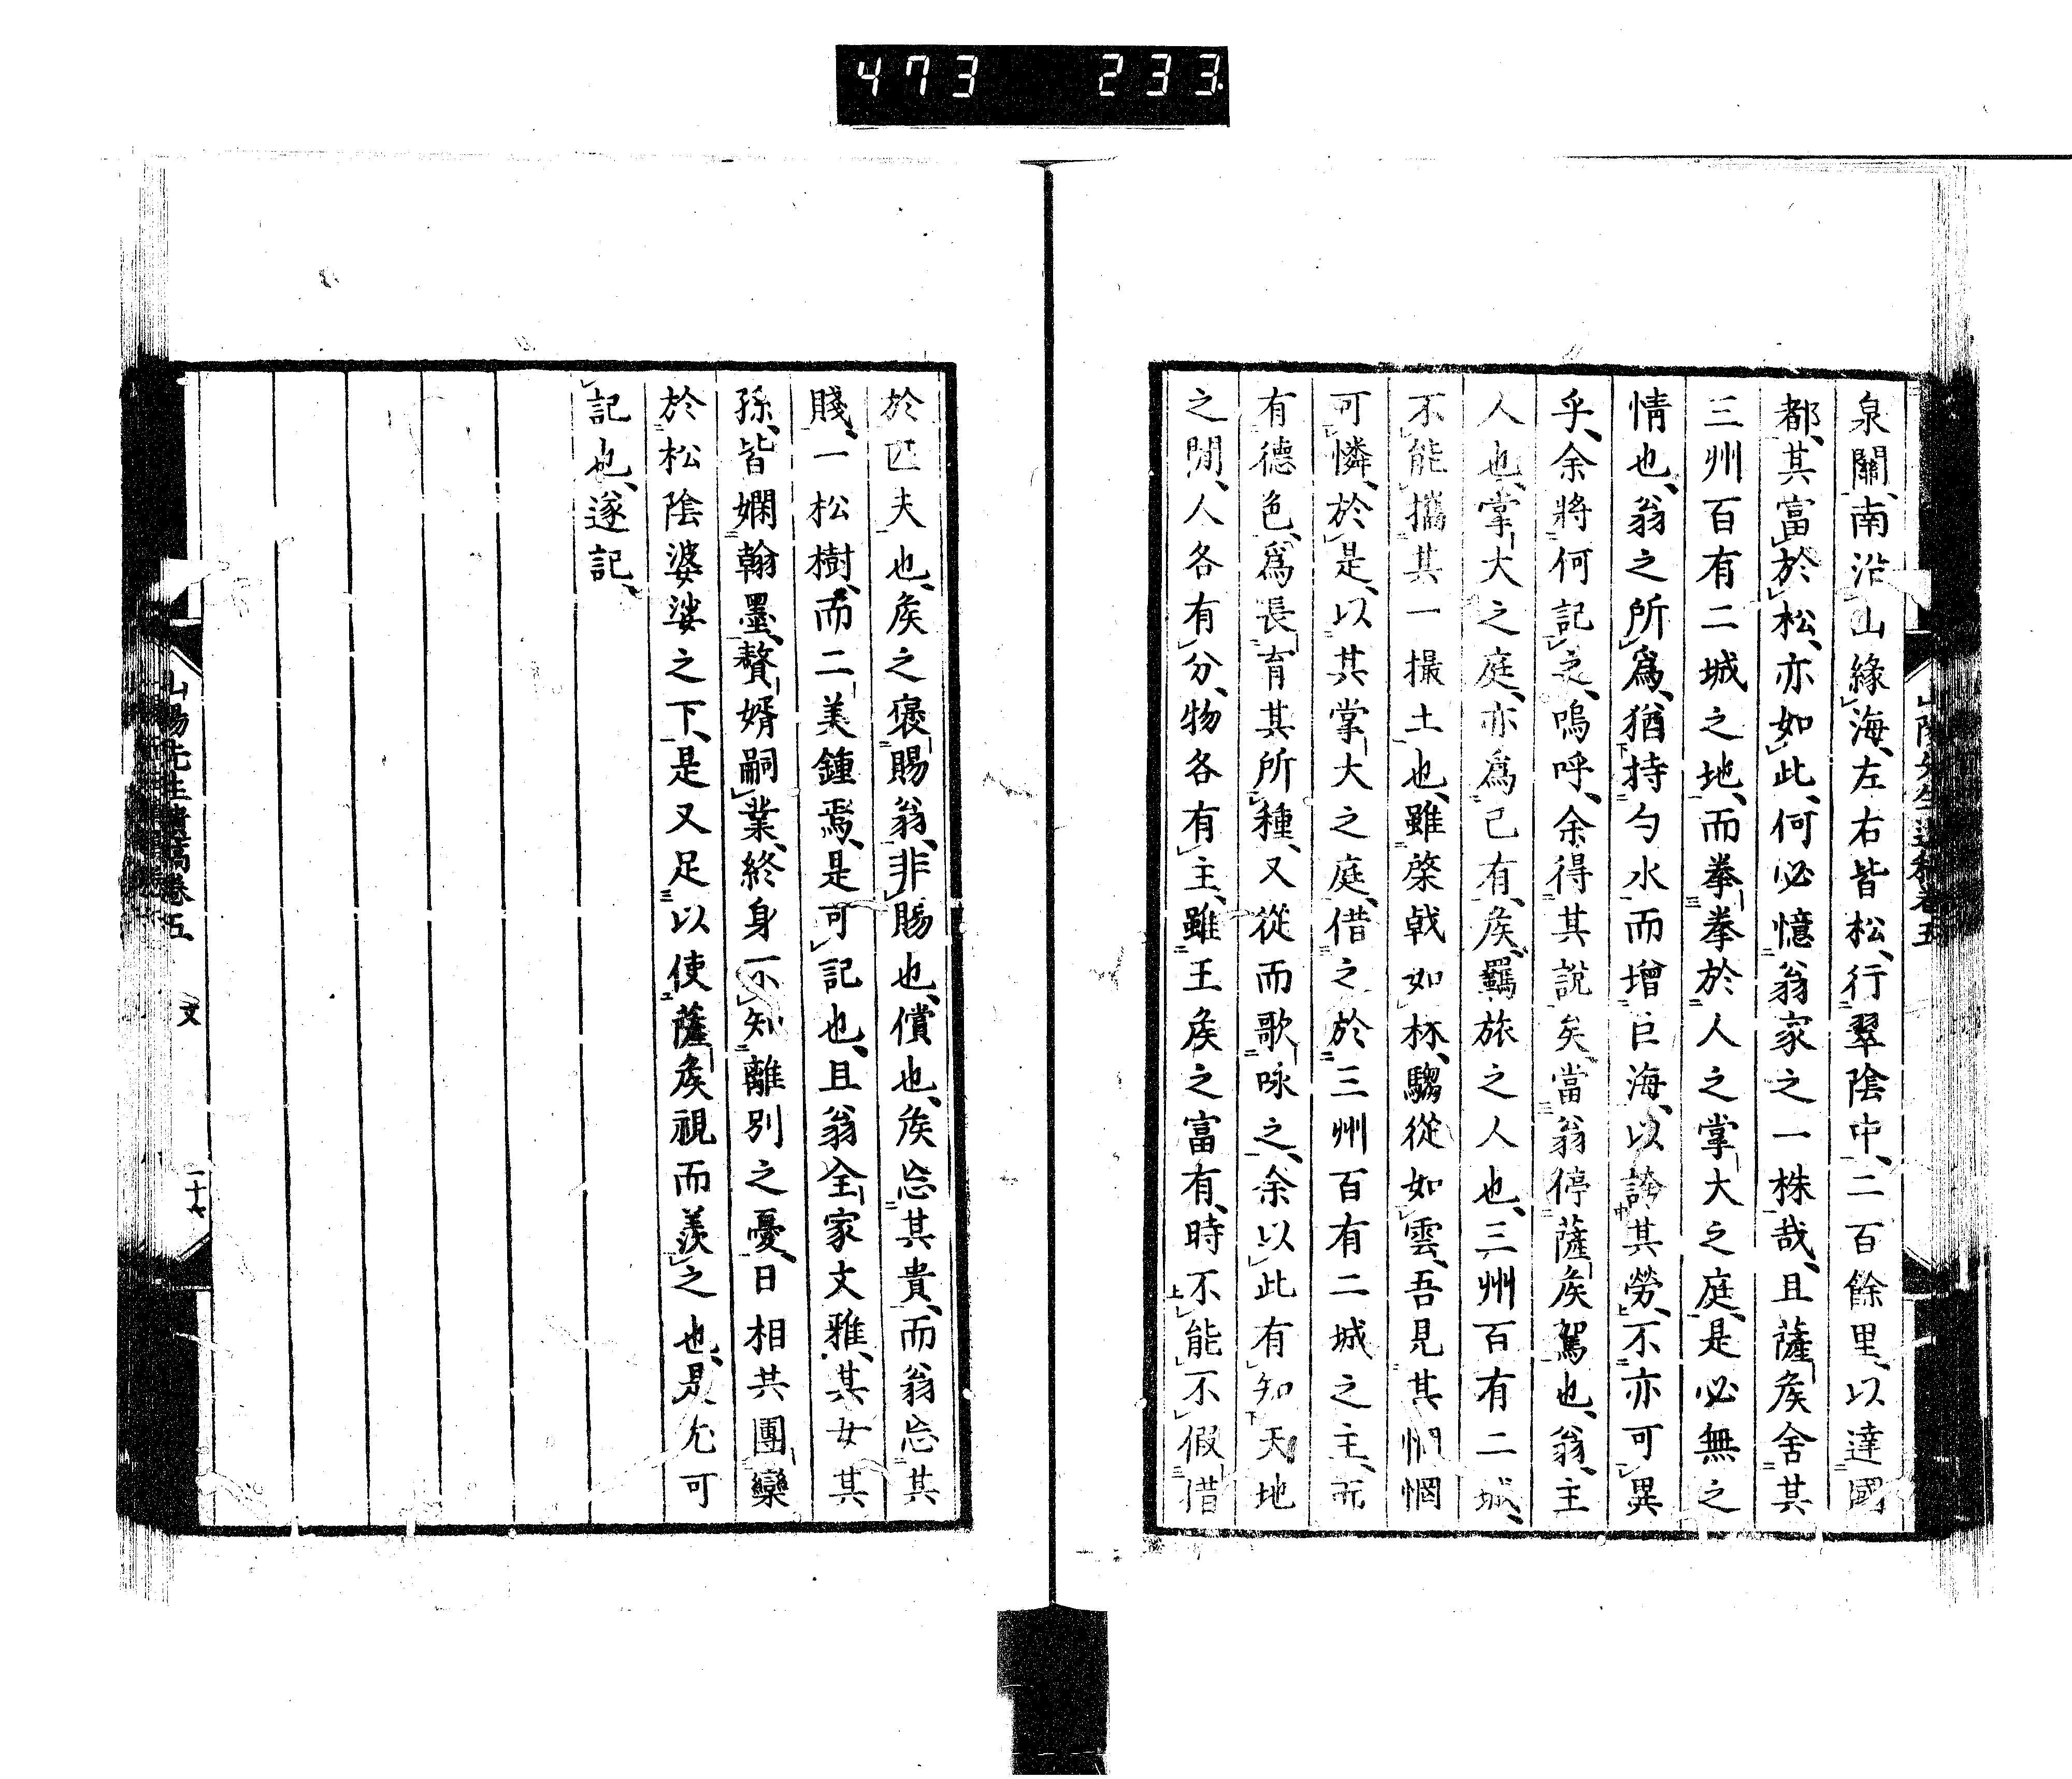 473 233
泉關、南沿山緣海、左右皆松、行翠陰中、二百餘里、以達國
都、其富於松、亦如此、何必憶翁家之一株哉、且薩矦舍其
三州百有二城之地、而拳拳於人之掌大之庭、是必無之
情也、翁之所爲、猶持勺水而增巨海、以誇其勞、不亦可異
乎、余將何記之、嗚呼、余得其說矣、當翁停薩矦駕也、翁、主
人也、掌大之庭、亦爲己有、矦、羈旅之人也、三州百有二城、
不能攜其一撮土也、雖棨戟如林、騶從如雲、吾見其惘惘
可憐、於是、以其掌大之庭、借之於三州百有二城之主、而
有德色、爲長育其所種、又從而歌咏之、余以此有知天地
之閒、人各有分、物各有主、雖王矦之富有、時不能不假借
於匹夫也、矦之褒賜翁、非賜也、償也、矦忘其貴、而翁忘其
賤、一松樹、而二美鍾焉、是可記也、且翁全家文雅、其女其
孫、皆嫻翰墨、贅婿嗣業、終身不知離別之憂、日相共團欒
於松陰婆娑之下、是又足以使薩矦視而羨之也、是尤可
記也、遂記、
山陽先生遺稿卷五
文